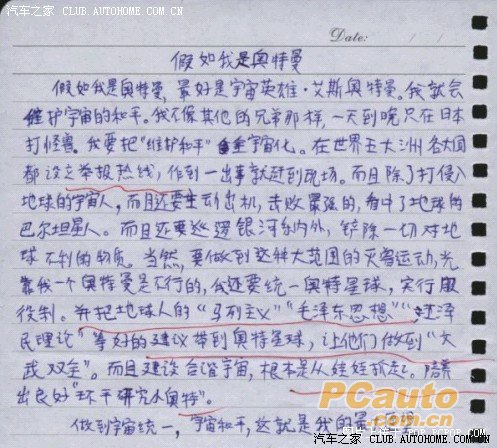 汽车之家 CLUB.AUTOHOME.COM.CN
Date: / /
假如我是奥特曼
假如我是奥特曼,最好是宇宙英雄·艾斯奥特曼。我就会
维护宇宙的和平。我不像其他的兄弟那样,一天到晚只在日本
打怪兽。我要把"维护和平"宇宙化。在世界五大洲各大国
都设立举报热线,作到一出事就赶到现场。而且除了打侵入
地球的宇宙人,而且还要主动出机,击败最强的,看中了地球的
巴尔坦星人。而且还要巡逻银河系内外,铲除一切对地
球不利的物质。当然,要做到这种大范围的灭兽运动,光
靠我一个奥特曼是不行的,我还要统一奥特星球,实行服
役制。并把地球人的"马列主义""毛泽东思想""江泽
民理论"等好的建议带到奥特星球,让他们做到"文
武双全"。而且建设合谐宇宙,根本是从娃娃抓起。培养
出良好"环平研究小奥特"。
做到宇宙统一,宇宙和平,这就是我的
PCauto
.com.cn
汽车之家 CLUB.AUTOHOME.COM.CN
POP.PCPOP.COM